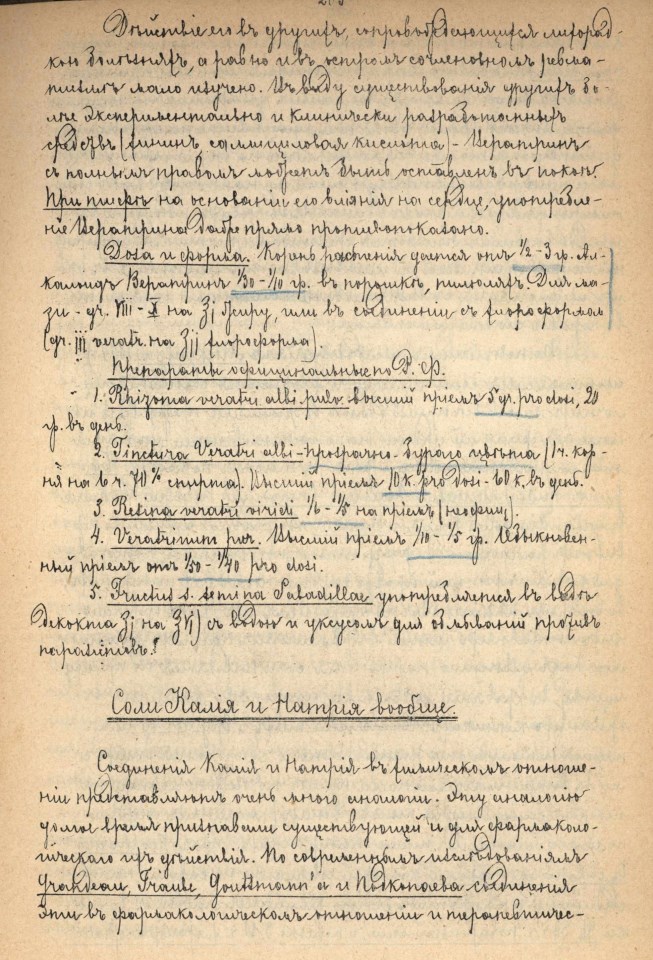 Дѣйствіе его въ другихъ, сопровождающихся лихорад-
кою болѣзняхъ, а равно и въ остромъ сочленовномъ ревма-
тизмѣ мало изучено. Въ виду существованія другихъ бо-
лѣе экспериментально и клинически разработанныхъ
средствъ (хининъ, салициловая кислота) - Вератринъ
съ полнымъ правомъ можетъ быть оставленъ въ покоѣ.
При тифѣ на основаніи его вліянія на сердце, употребле-
ніе Вератрина даже прямо противопоказано.
Доза и форма. Корень растенія дается отъ 1/2 - 3 гр. Ал-
калоидъ Вератринъ 1/30 - 1/10 гр. въ порошкѣ, пилюляхъ. Для ма-
зи - gr. VIII - X на ʒj жиру, или въ соединеніи съ хлороформомъ
(gr. iij veratr. на ʒij хлороформа).
Препараты официнальные по Р. Ф.
1. Rhizoma veratri albi pulv. высшій пріемъ 5 gr. pro dosi, 20
гр. въ день.
2. Tinctura Veratri albi - прозрачно-бураго цвѣта (1 ч. кор-
ня на 6 ч. 70% спирта). Высшій пріемъ 10 к. pro dosi - 60 к. въ день.
3. Resina veratri viridi 1/6 - 1/5 на пріемъ (неофиц.).
4. Veratrinum pur. Высшій пріемъ 1/10 - 1/5 гр. Обыкновен-
ный пріемъ отъ 1/50 - 1/40 pro dosi.
5. Fructus s. semina Sabadillae употребляется въ видѣ
декокта ʒj на ʒVj) съ водою и уксусомъ для обмываній противъ
паразитовъ.
Соли Калія и Натрія вообще.
Соединенія Калія и Натрія въ химическомъ отноше-
ніи представляютъ очень много аналогіи. Эту аналогію
долгое время признавали существующей и для фармаколо-
гическаго ихъ дѣйствія. По современнымъ изслѣдованіямъ
Grandeau, Traube, Gouttmann'a и Подкопаева соединенія
эти въ фармакологическомъ отношеніи и терапевтичес-